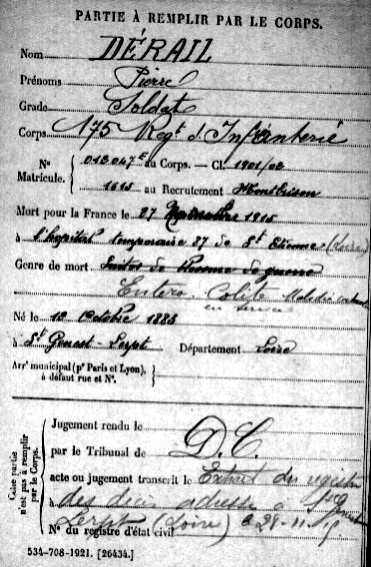 PARTIE À REMPLIR PAR LE CORPS.
Nom DÉRAIL
Prénoms Pierre
Grade Soldat
Corps 175 Regt d'Infanterie
N° Matricule. 018047E au Corps. — Cl. 1901/08
1615 au Recrutement Montbrison
Mort pour la France le 27 Novembre 1915
à l'hôpital temporaire 87 de St Etienne (Loire)
Genre de mort Suites de
Entero-Colite Maladie
en service
Né le 12 Octobre 1883
à St Genest-Lerpt Département Loire
Arrt municipal (pr Paris et Lyon), à défaut rue et N°.
Cette partie n'est pas à remplir par le Corps.
Jugement rendu le
par le Tribunal de D.C.
acte ou jugement transcrit le Extrait du registre
à des décès adressé à St Genest
Lerpt (Loire) le 28-11-15
N° du registre d'état civil
534-708-1921. [26434.]